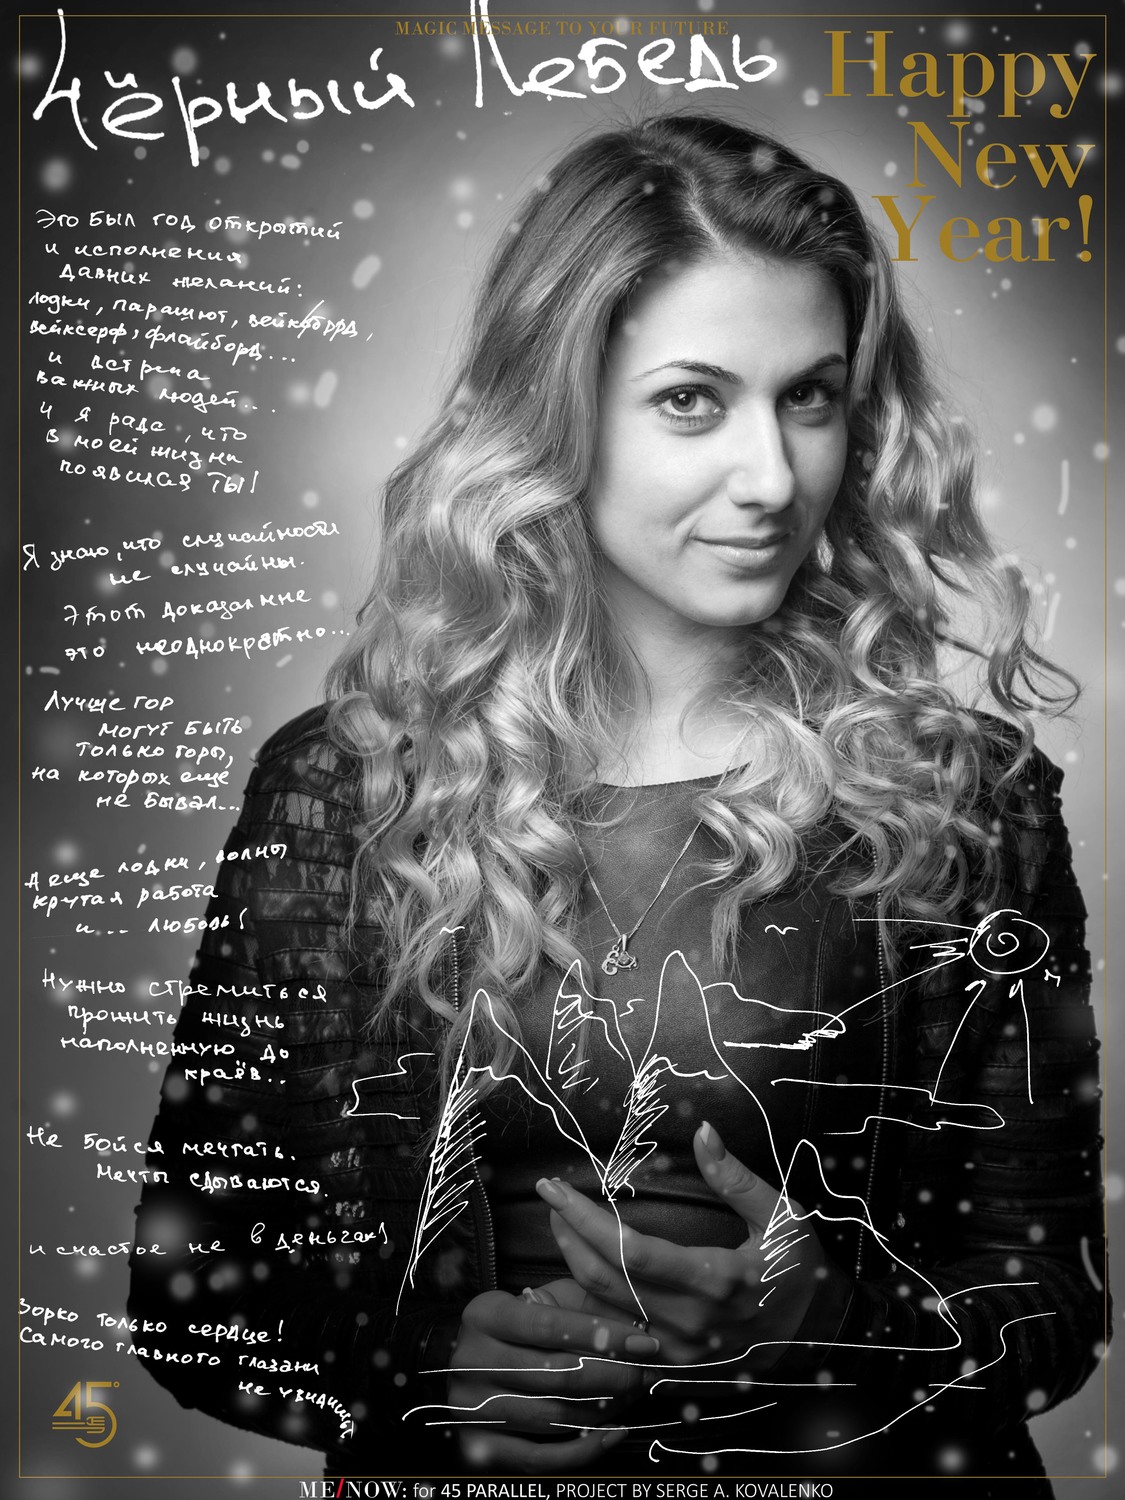 MAGIC MESSAGE TO YOUR FUTURE
Чёрный Лебедь
Happy
New
Year!
Это был год открытий
и исполнения
давних желаний:
лодки, парашют, вейкборд,
вейксерф, флайборд...
и встреча
важных людей...
и я рада, что
в моей жизни
появился ТЫ!
Я знаю, что случайности
не случайны.
Этот доказал мне
это неоднократно...
Лучше гор
могут быть
только горы,
на которых ещё
не бывал...
А еще лодки, волны
крутая работа
и... любовь!
Нужно стремиться
прожить жизнь
наполненную до
краёв...
Не бойся мечтать.
Мечты сбываются.
и счастье не в деньгах!
Зорко только сердце!
Самого главного глазами
не увидишь
45°
ME/NOW: for 45 PARALLEL, PROJECT BY SERGE A. KOVALENKO